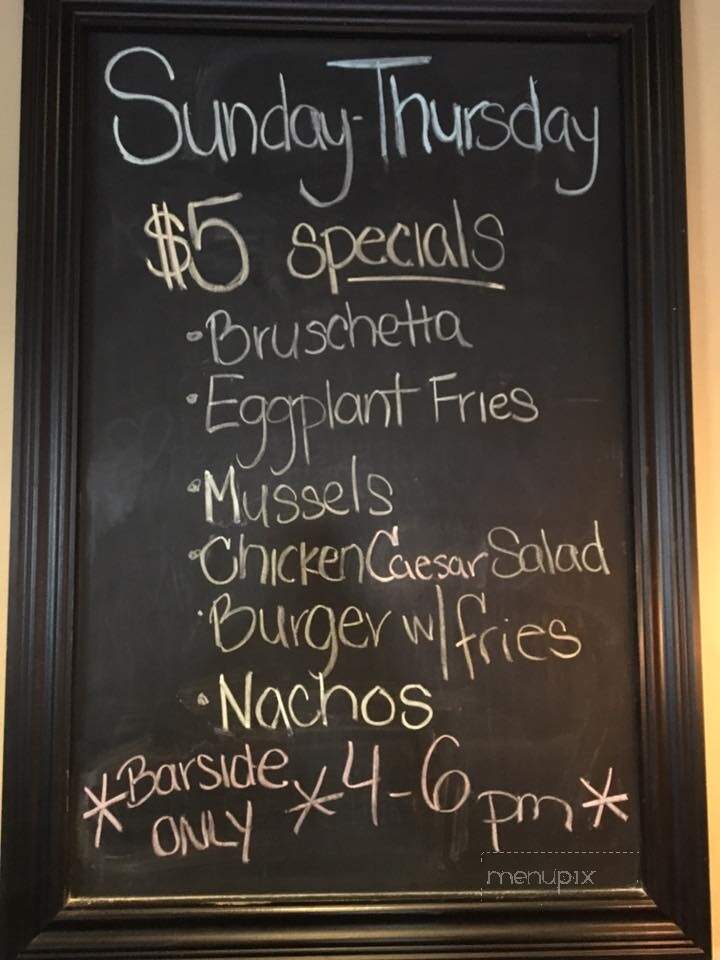 Sunday-Thursday
$5 specials
•Bruschetta
•Eggplant Fries
•Mussels
•Chicken Caesar Salad
•Burger w/fries
•Nachos
*Barside ONLY *4-6pm*
menupix